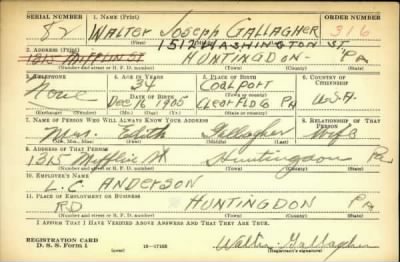 SERIAL NUMBER 1. NAME (Print) ORDER NUMBER
82 WALTER JOSEPH GALLAGHER 316
(First) (Middle) (Last)
1512 WASHINGTON ST
2. ADDRESS (Print)
1315 MIFFLIN ST HUNTINGDON - PA
(Number and street or R. F. D. number) (Town) (County) (State)
3. TELEPHONE 4. AGE IN YEARS 5. PLACE OF BIRTH 6. COUNTRY OF CITIZENSHIP
None 34 COALPORT
DATE OF BIRTH (Town or county)
Dec 6 1905 CLEARFLD Co PA U.S.A.
(Exchange) (Number) (Mo.) (Day) (Yr.) (State or country)
7. NAME OF PERSON WHO WILL ALWAYS KNOW YOUR ADDRESS 8. RELATIONSHIP OF THAT PERSON
Mrs. Edith Gallagher Wife
(Mr., Mrs., Miss) (First) (Middle) (Last)
9. ADDRESS OF THAT PERSON
1315 Mifflin St Huntingdon Pa
(Number and street or R. F. D. number) (Town) (County) (State)
10. EMPLOYER'S NAME
L.C. ANDERSON
11. PLACE OF EMPLOYMENT OR BUSINESS
RD HUNTINGDON PA
(Number and street or R. F. D. number) (Town) (County) (State)
I AFFIRM THAT I HAVE VERIFIED ABOVE ANSWERS AND THAT THEY ARE TRUE.
REGISTRATION CARD
D. S. S. Form 1 (over) 16-17105 Walter Gallagher
(Registrant's signature)